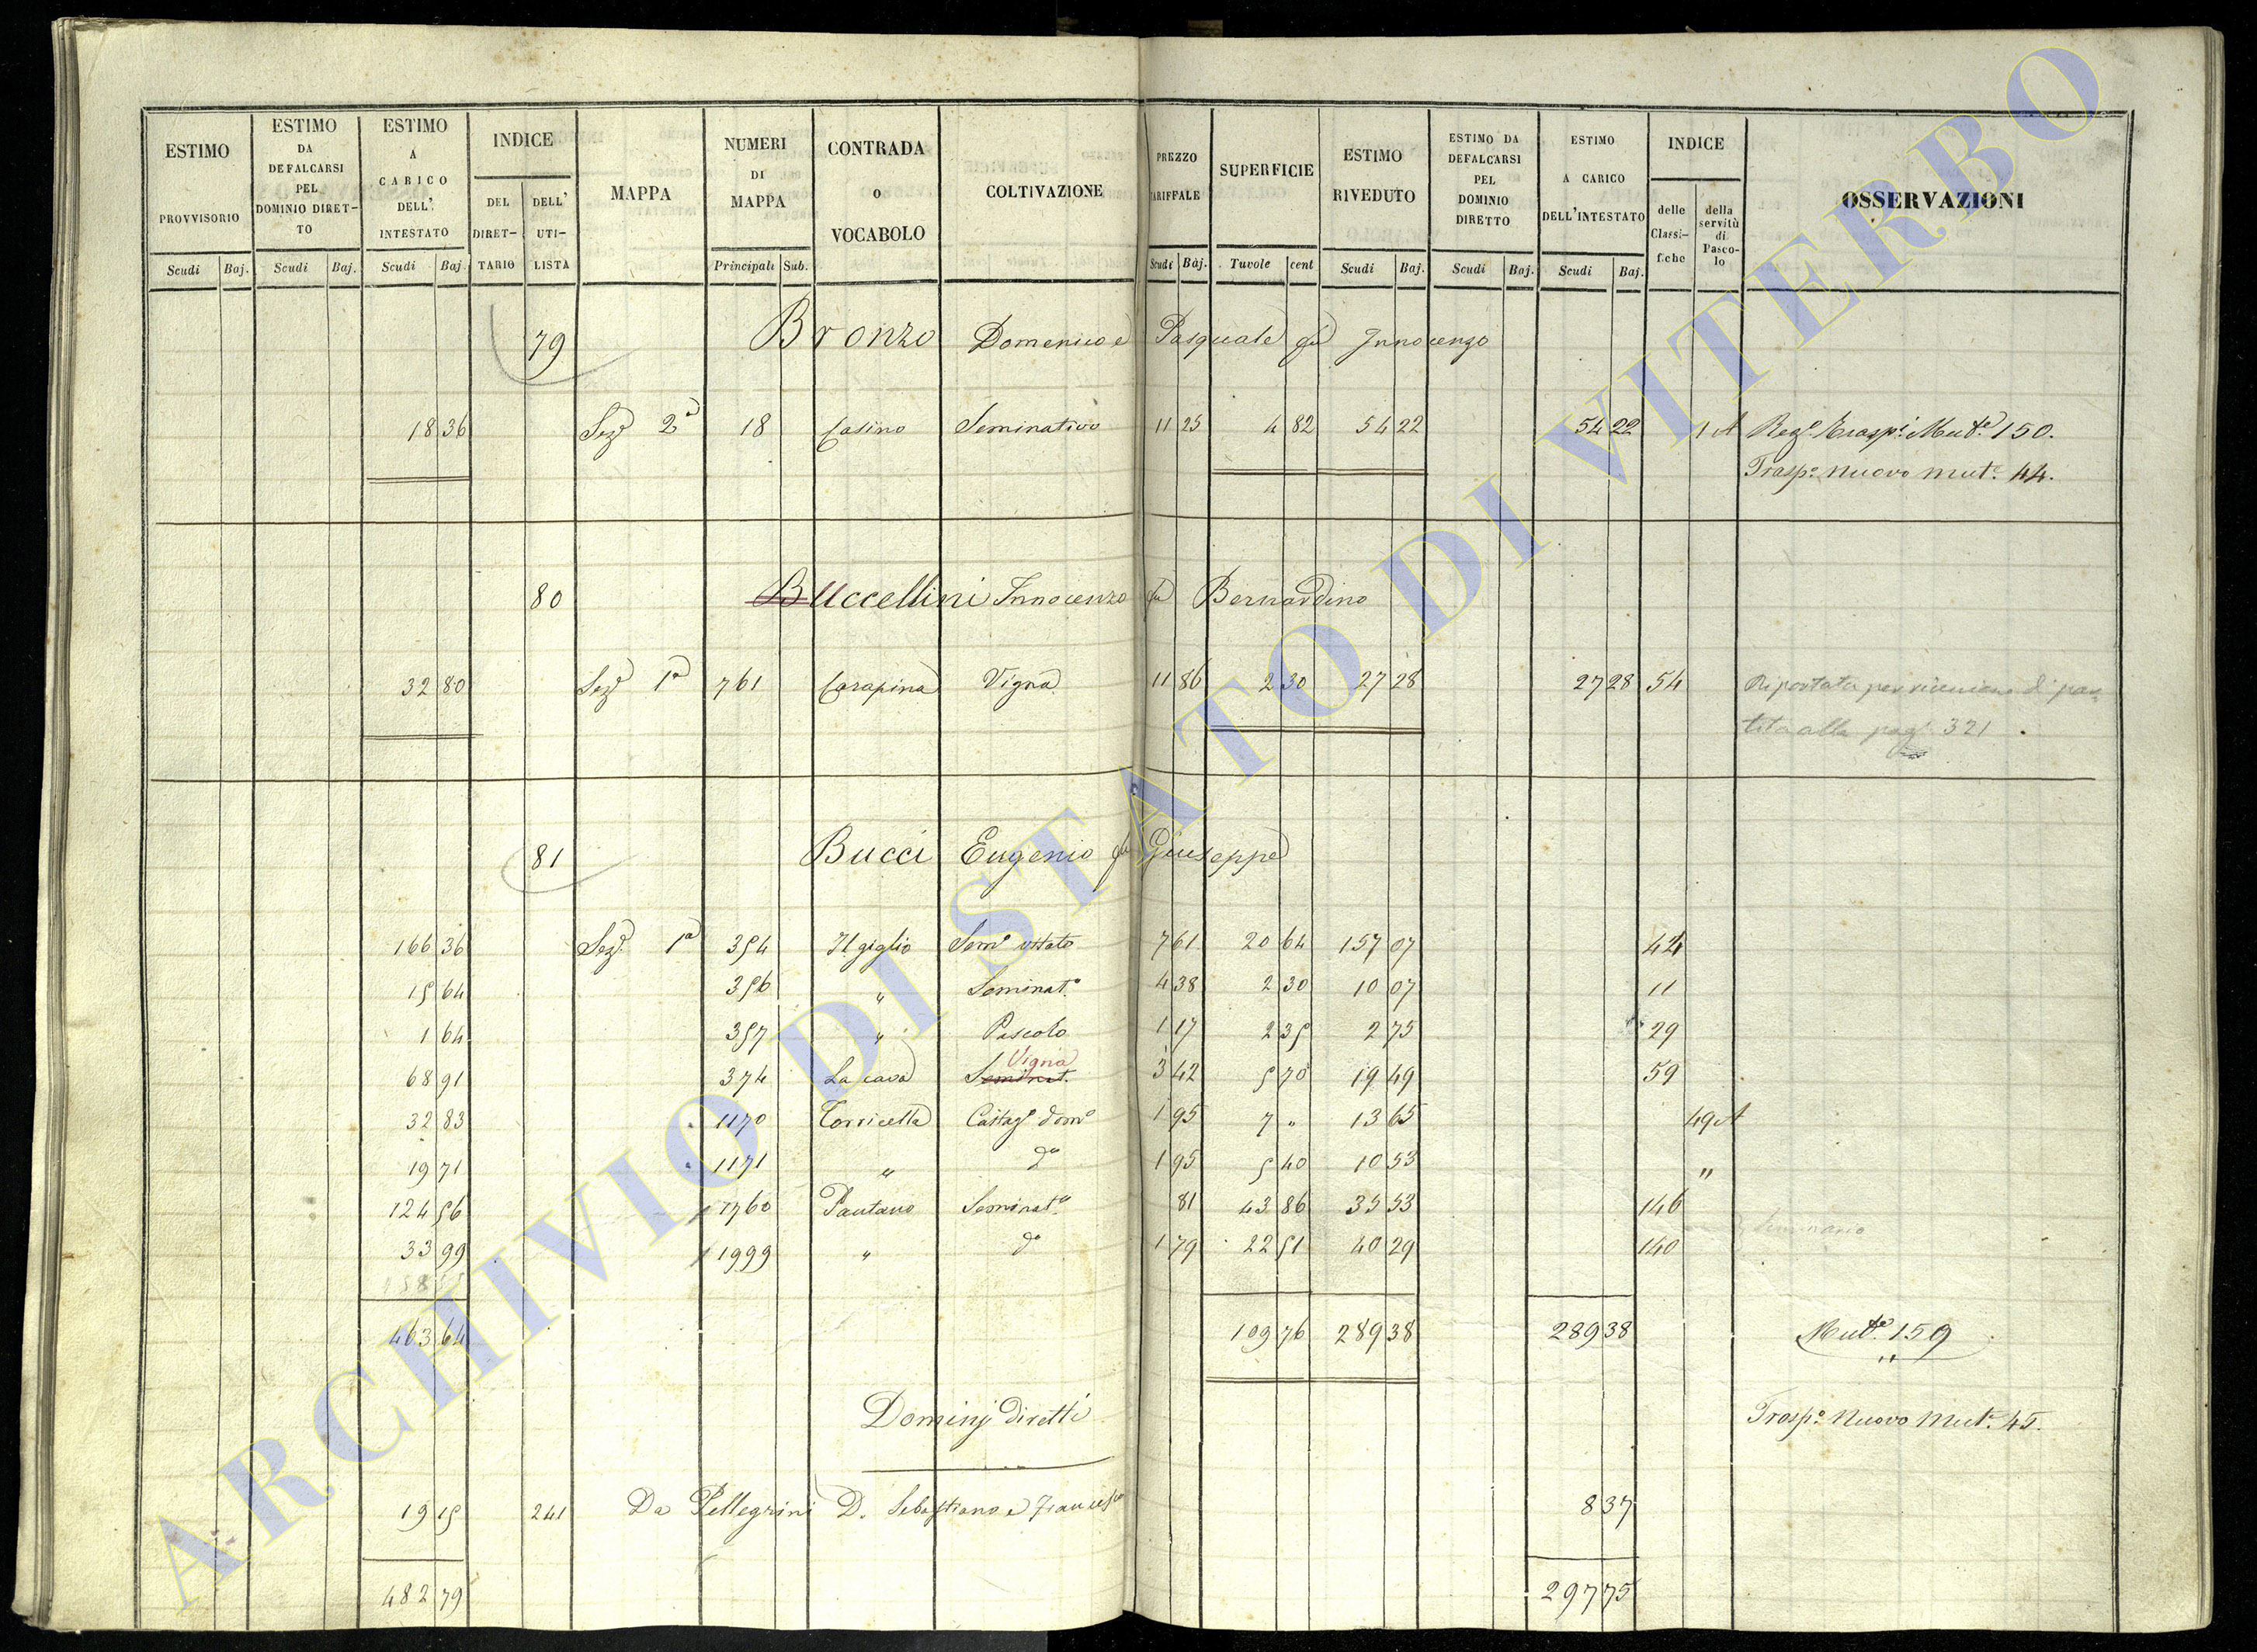 ESTIMO PROVVISORIO Scudi Baj.
ESTIMO DA DEFALCARSI PEL DOMINIO DIRET-TO Scudi Baj.
ESTIMO A CARICO DELL' INTESTATO Scudi Baj.
INDICE DEL DIRET-TARIO DELL' UTI-LISTA
MAPPA
NUMERI DI MAPPA Principali Sub.
CONTRADA o VOCABOLO
COLTIVAZIONE
PREZZO TARIFFALE Scudi Baj.
SUPERFICIE Tavole cent
ESTIMO RIVEDUTO Scudi Baj.
ESTIMO DA DEFALCARSI PEL DOMINIO DIRETTO Scudi Baj.
ESTIMO A CARICO DELL'INTESTATO Scudi Baj.
INDICE delle Classi-fiche della servitù di Pasco-lo
OSSERVAZIONI
79 Bronzo Domenico e Pasquale fu Innocenzo
18 36 Sezе 2a 18 Casino Seminativo 11 25 4 82 54 22 54 22 1 A Rego Traspi Mute 150.
Traspo Nuovo Mute. 44.
80 Buccellini Innocenzo fu Bernardino
32 80 Seze 1a 761 Carapina Vigna 11 86 2 30 27 28 27 28 54 Riportata per riunione di par-
tita alla pag. 321
81 Bucci Eugenio fu Giuseppe
166 36 Seze 1a 354 Il giglio Semo vitato 7 61 20 64 157 07 42
15 64 356 " Seminato 4 38 2 30 10 07 11
1 64 357 " Pascolo 1 17 2 35 2 75 29
Vigna
68 91 374 La cava Seminat. 3 42 5 70 19 49 59
32 83 1170 Torricella Castago domo 1 95 7 " 13 65 49 A
19 71 1171 " do 1 95 5 40 10 53 "
124 56 1760 Pantano Seminato 81 43 86 35 53 146
33 99 1999 " do 1 79 22 51 40 29 140
463 64 109 76 289 38 289 38 Mute 159
Dominj diretti
Traspo Nuovo Mute. 45.
19 15 241 Da Pellegrini D. Sebastiano e Francesco 8 37
482 79 297 75
ARCHIVIO DI STATO DI VITERBO